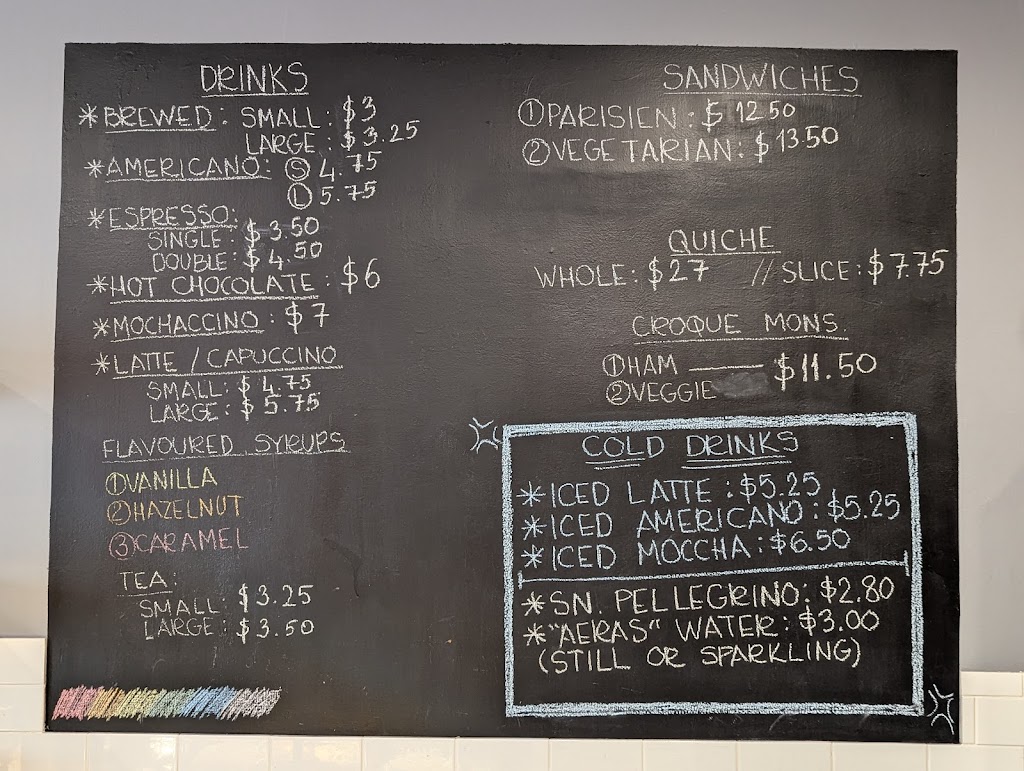 DRINKS
*BREWED: SMALL: $3
LARGE: $3.25
*AMERICANO: Ⓢ 4.75
Ⓛ 5.75
*ESPRESSO:
SINGLE: $3.50
DOUBLE: $4.50
*HOT CHOCOLATE: $6
*MOCHACCINO: $7
*LATTE / CAPUCCINO
SMALL: $4.75
LARGE: $5.75
FLAVOURED SYRUPS
①VANILLA
②HAZELNUT
③CARAMEL
TEA:
SMALL: $3.25
LARGE: $3.50
SANDWICHES
①PARISIEN: $12.50
②VEGETARIAN: $13.50
QUICHE
WHOLE: $27 // SLICE: $7.75
CROQUE MONS.
①HAM — $11.50
②VEGGIE
COLD DRINKS
*ICED LATTE: $5.25
*ICED AMERICANO: $5.25
*ICED MOCCHA: $6.50
*SN. PELLEGRINO: $2.80
*"AERAS" WATER: $3.00
(STILL OR SPARKLING)